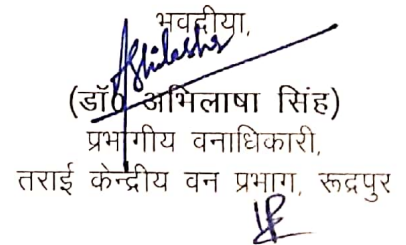 भवदीया,
Abhilasha
(डॉ0 अभिलाषा सिंह)
प्रभागीय वनाधिकारी,
तराई केन्द्रीय वन प्रभाग, रूद्रपुर